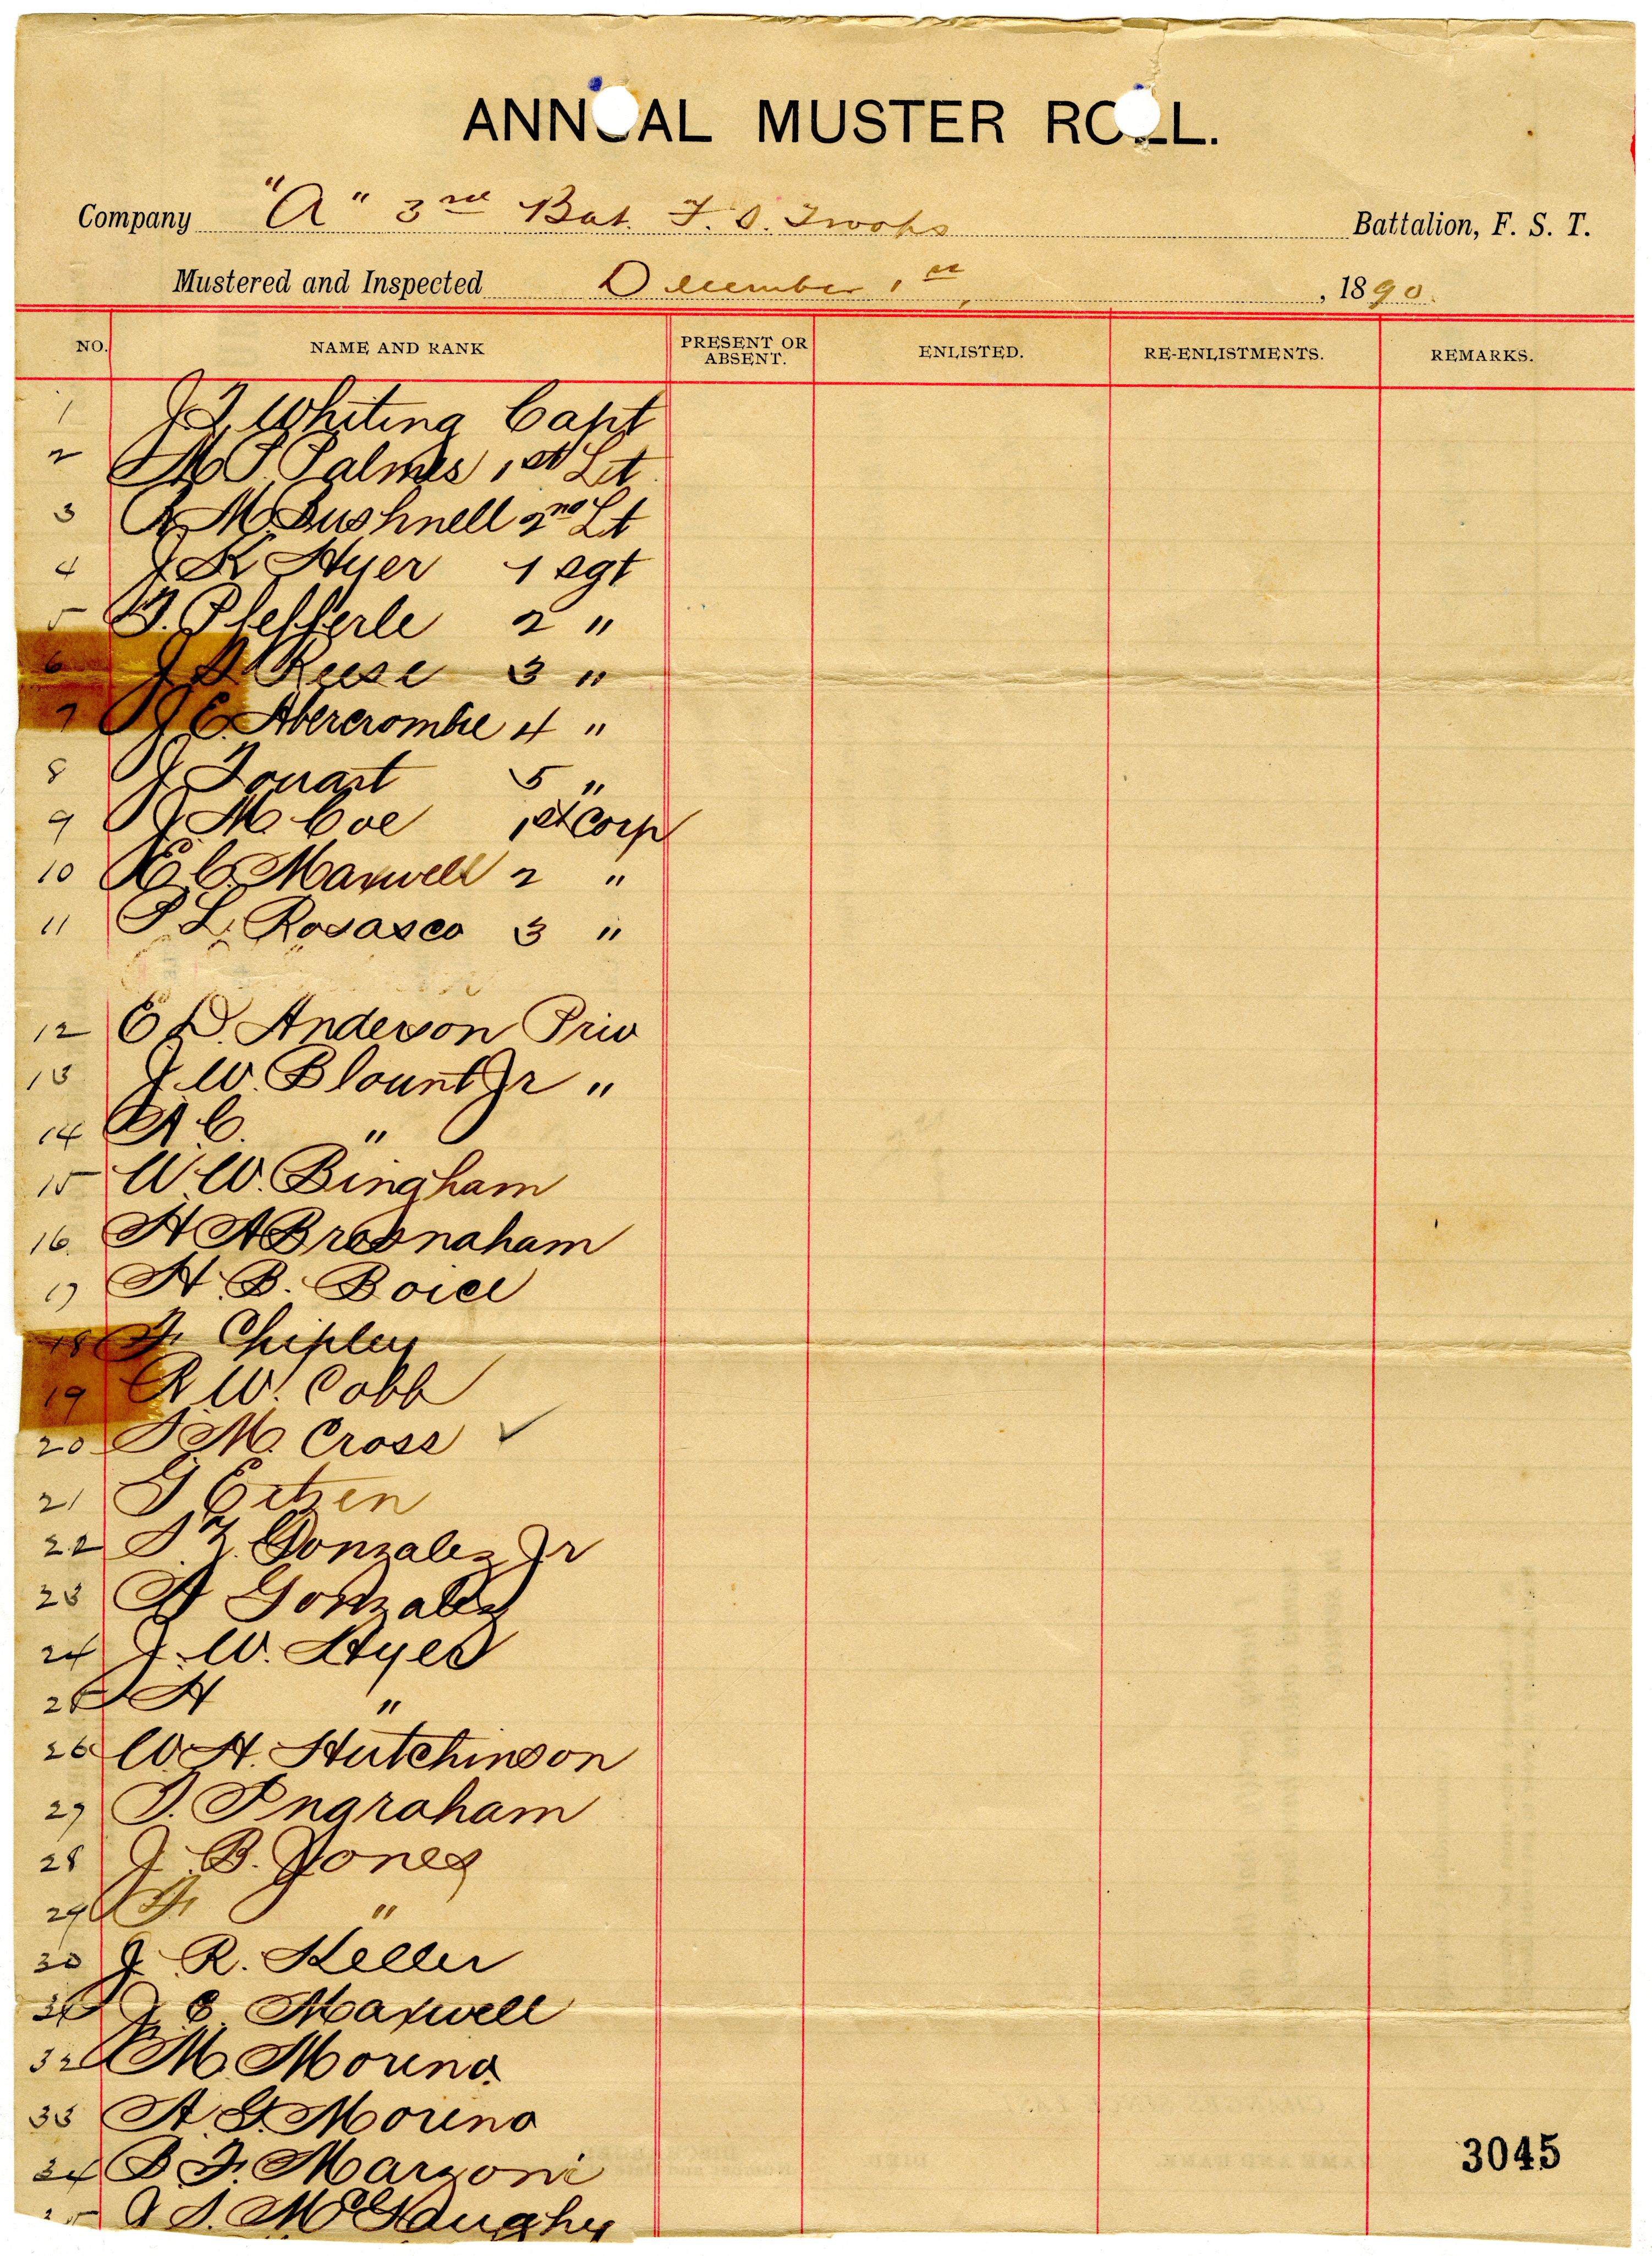 ANNUAL MUSTER ROLL.
Company "A" 3rd Bat. F. S. Troops Battalion, F. S. T.
Mustered and Inspected December 1st, 1890.
NO. NAME AND RANK PRESENT OR ABSENT. ENLISTED. RE-ENLISTMENTS. REMARKS.
1 Whiting Capt
2 Palmes 1st Lt
3 M Bushnell 2nd Lt
4 J K Hyer 1 sgt
5 Pfefferle 2 "
6 J Reese 3 "
7 J E Abercrombie 4 "
8 J Touart 5 "
9 J M Coe 1st Corp
10 C. Maxwell 2 "
11 L. Rosasco 3 "
12 E D. Anderson Priv
13 J. W. Blount Jr "
14 A C. "
15 W W. Bingham
16. H A Bresnaham
17 H. B. Boice
18 Chipley
19 R W. Cobb
20 M. Cross ✓
21 Eitzen
22 Gonzalez Jr
23 Gonzalez
24 J. W. Hyer
25 H "
26 W. H. Hutchinson
27 Ingraham
28 J. B. Jones
29 "
30 J. R. Keller
31 Maxwell
32 M Moreno
33 A Moreno
34 B F. Marzoni
35 McGaughy
3045